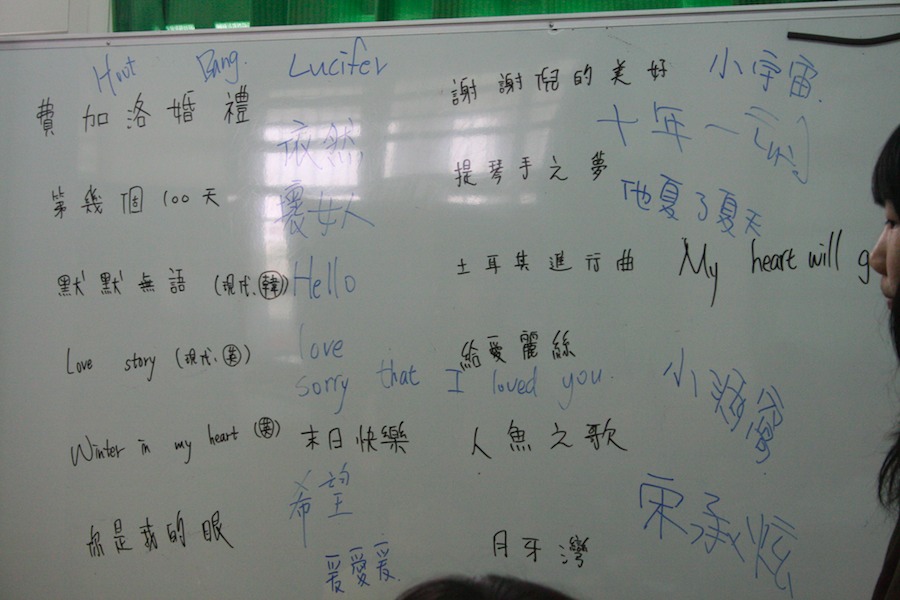 Hoot Bang. Lucifer
費加洛婚禮
依然
第幾個100天
壞女人
默默無語(現代、韓)
Hello
Love story (現代、英)
love
sorry that I loved you.
Winter in my heart (英)
末日快樂
希望
你是我的眼
爱爱爱.
謝謝你的美好
小宇宙.
十年一
提琴手之夢
他夏了夏天
土耳其進行曲
My heart will g
給愛麗絲
小酒窩
人魚之歌
宋承炫
月牙灣